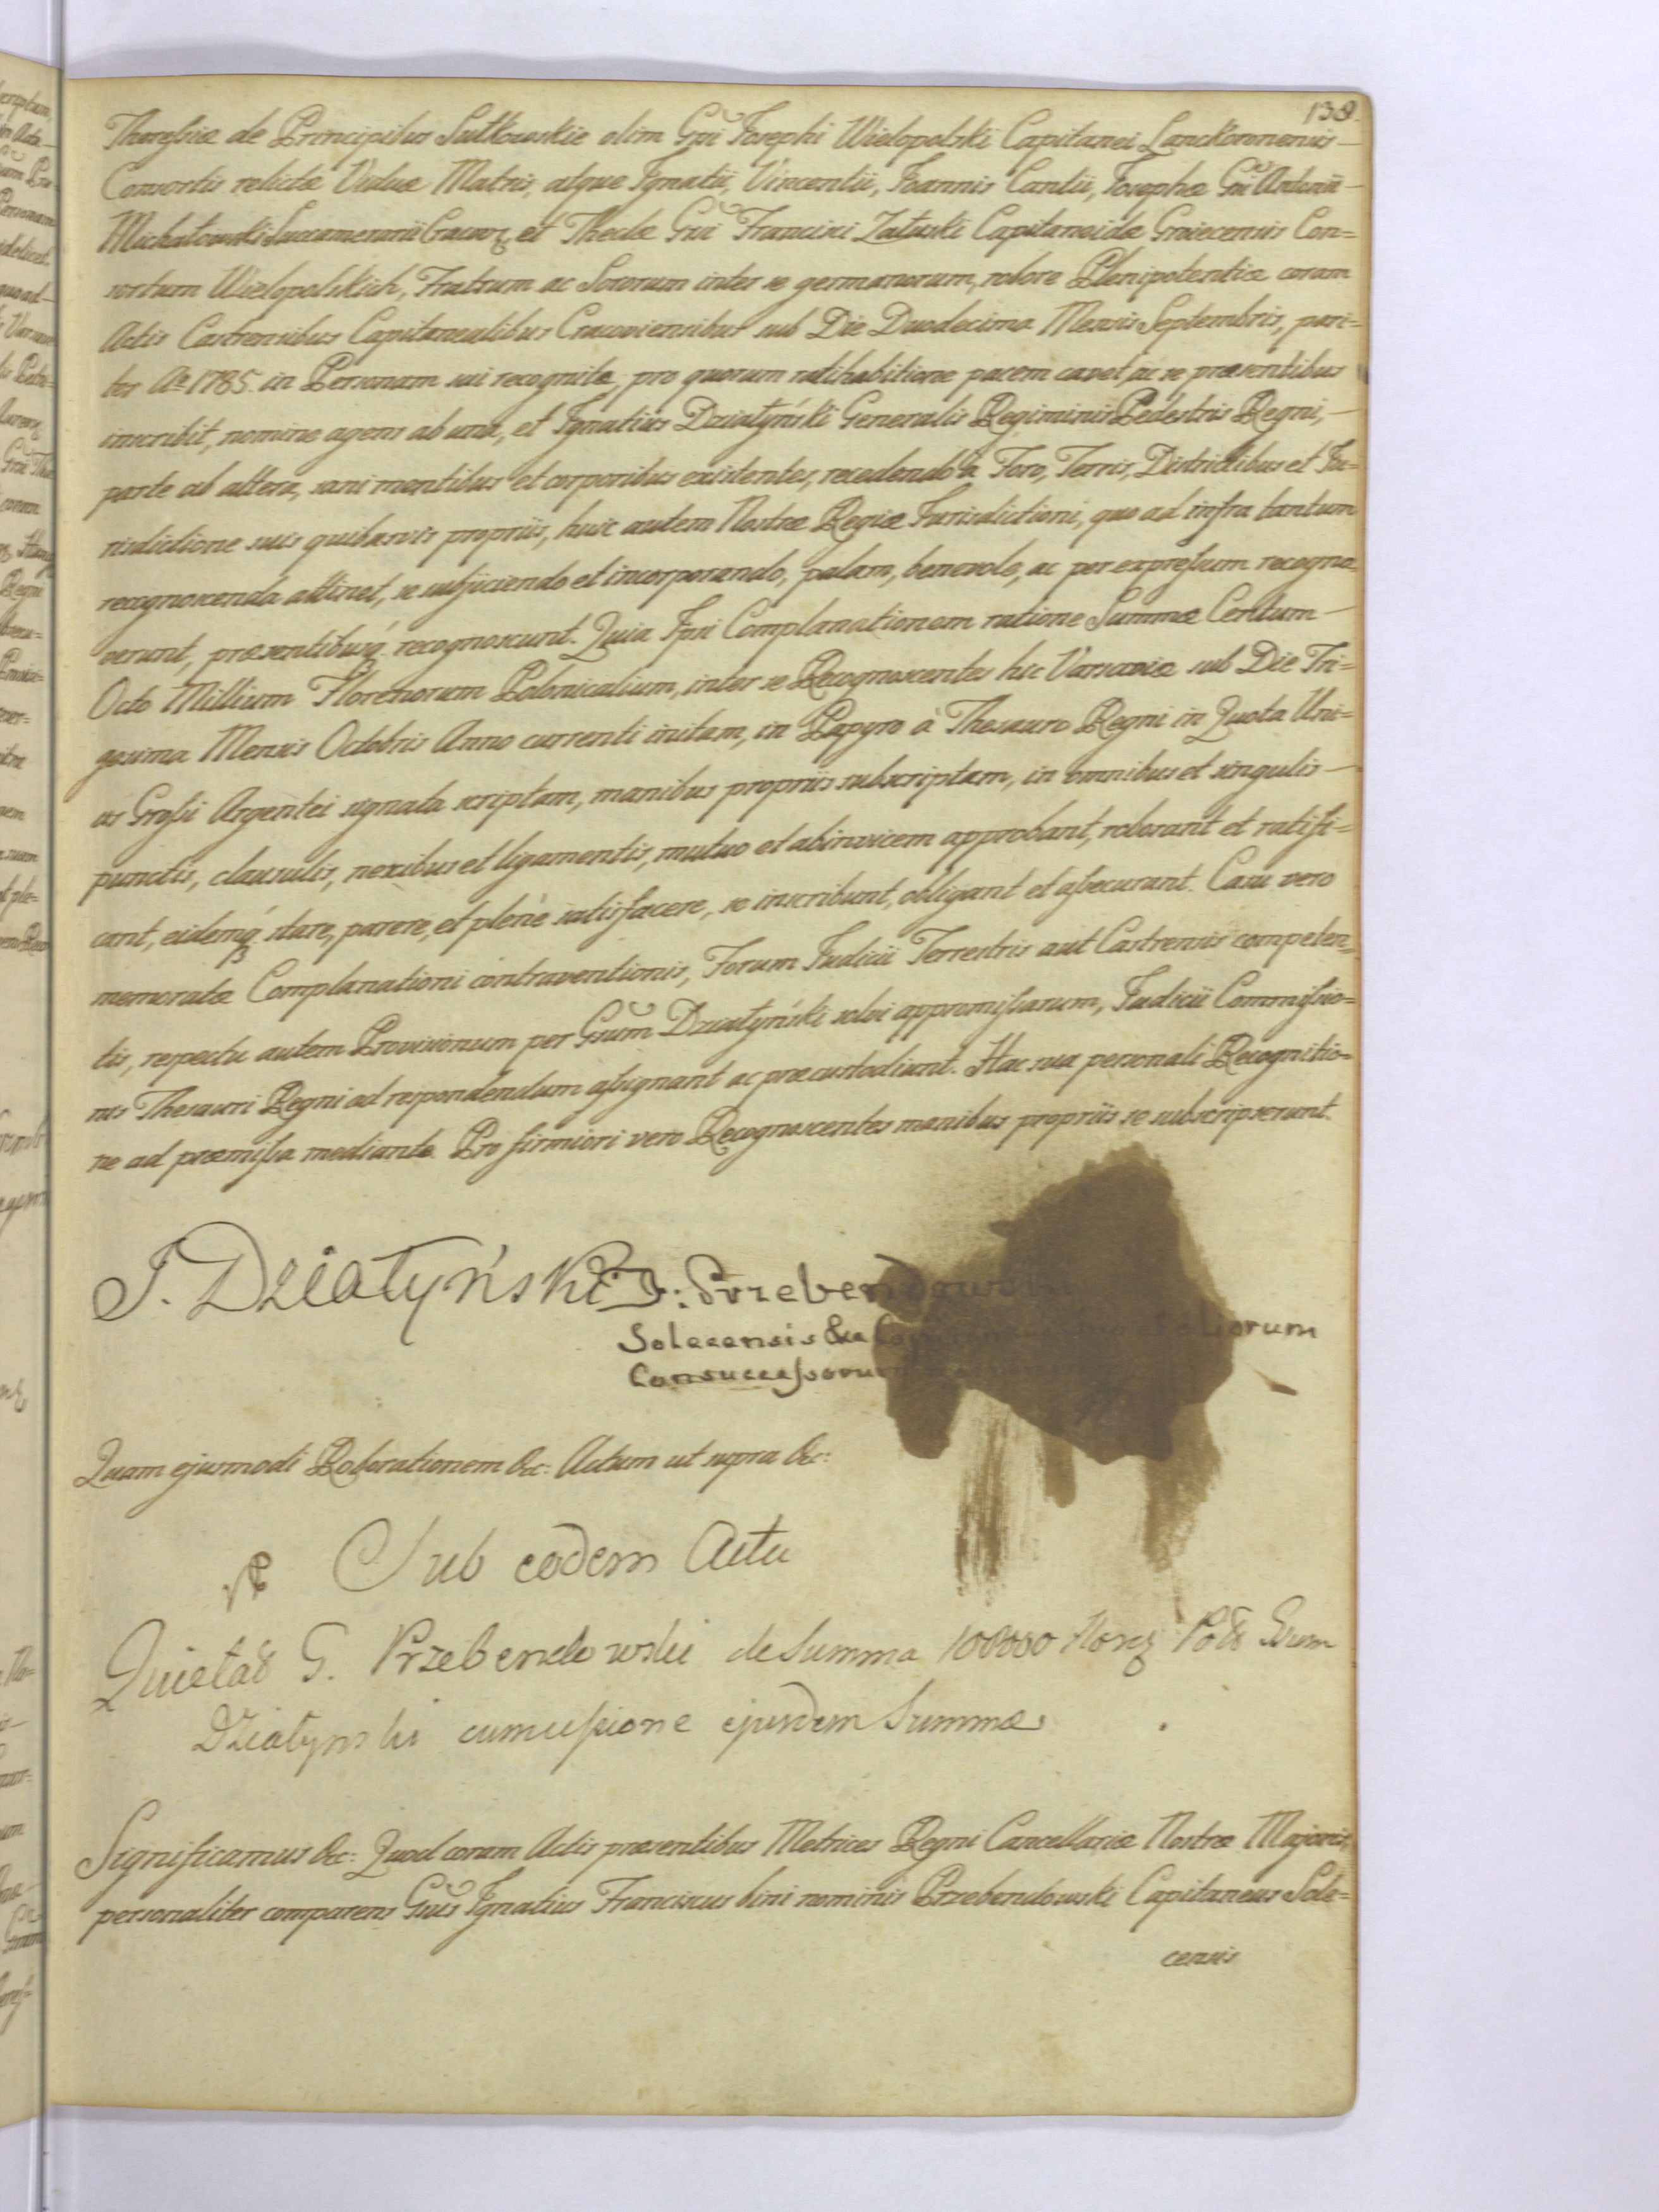 138.
Theresiæ de Principibus Sułkowskie olim Gſi Josephi Wielopolski Capitanei Lanckoronensis
Consortis relictæ Viduæ Matris, atque Ignatii, Vincentii, Joannis Cantii, Josephæ Gſi Antonii
Michałowski Succamerarii Cracov: et Theclæ Gſi Francisci Załuski Capitaneidæ Groiecensis Con=
sortum Wielopolskich, Fratrum ac Sororum inter se germanorum, robore Plenipotentiæ coram
Actis Castrensibus Capitanealibus Cracoviensibus sub Die Duodecima Mensis Septembris, pari=
ter Aº 1785. in Personam sui recognitæ, pro quorum ratihabitione pacem cavet, ac se præsentibus
inscribit, nomine agens ab una, et Ignatius Działyński Generalis Regiminis Pedestris Regni,
parte ab altera, sani mentibus et corporibus existentes, recedendo à Foro, Terris, Districtibus et Ju=
risdictione suis quibusvis propriis, huic autem Nostræ Regiæ Jurisdictioni, quo ad infra tantum
recognoscenda attinet, se subjiciendo et incorporando, palam, benevole, ac per expreſsum recogno=
verunt, præsentibusq́ recognoscunt. Quia Ipsi Complanationem ratione Summæ Centum
Octo Millium Florenorum Polonicalium, inter se Recognoscentes hic Varsaviæ sub Die Tri=
gesima Mensis Octobris Anno currenti initam, in Papyro à Thesauro Regni in Quota Uni=
us Groſsi Argentei signata scriptam, manibus propriis subscriptam, in omnibus et singulis
punctis, clausulis, nexibus et ligamentis, mutuo et abinvicem approbant, roborant et ratifi=
cant, eidemq́ stare, parere, et plenè satisfacere, se inscribunt, obligant et aſsecurant. Casu vero
memoratæ Complanationi contraventionis, Forum Judicii Terrestris aut Castrensis competen=
tis, respectu autem Provisionum per Gſum Działyński solvi appromiſsarum, Judicii Commiſsio=
nis Thesauri Regni ad respondendum aſsignant ac præcustodiunt. Hac sua personali Recognitio=
ne ad præmiſsa mediante. Pro firmiori vero Recognoscentes manibus propriis se subscripserunt.
J. Działyński I: Przebendowski
Solecensis &
Consucceſsorum
Quam ejusmodi Roborationem &c: Actum ut supra &c:
Sub eodem Actu
Quietat G. Przebendowski de Summa 108000 Flor:
Działynski cum ejusdem Summæ
Significamus &c: Quod coram Actis præsentibus Metrices Regni Cancellariæ Nostræ Majoris,
personaliter comparens Gſus Ignatius Franciscus bini nominis Przebendowski Capitaneus Sole=
censis